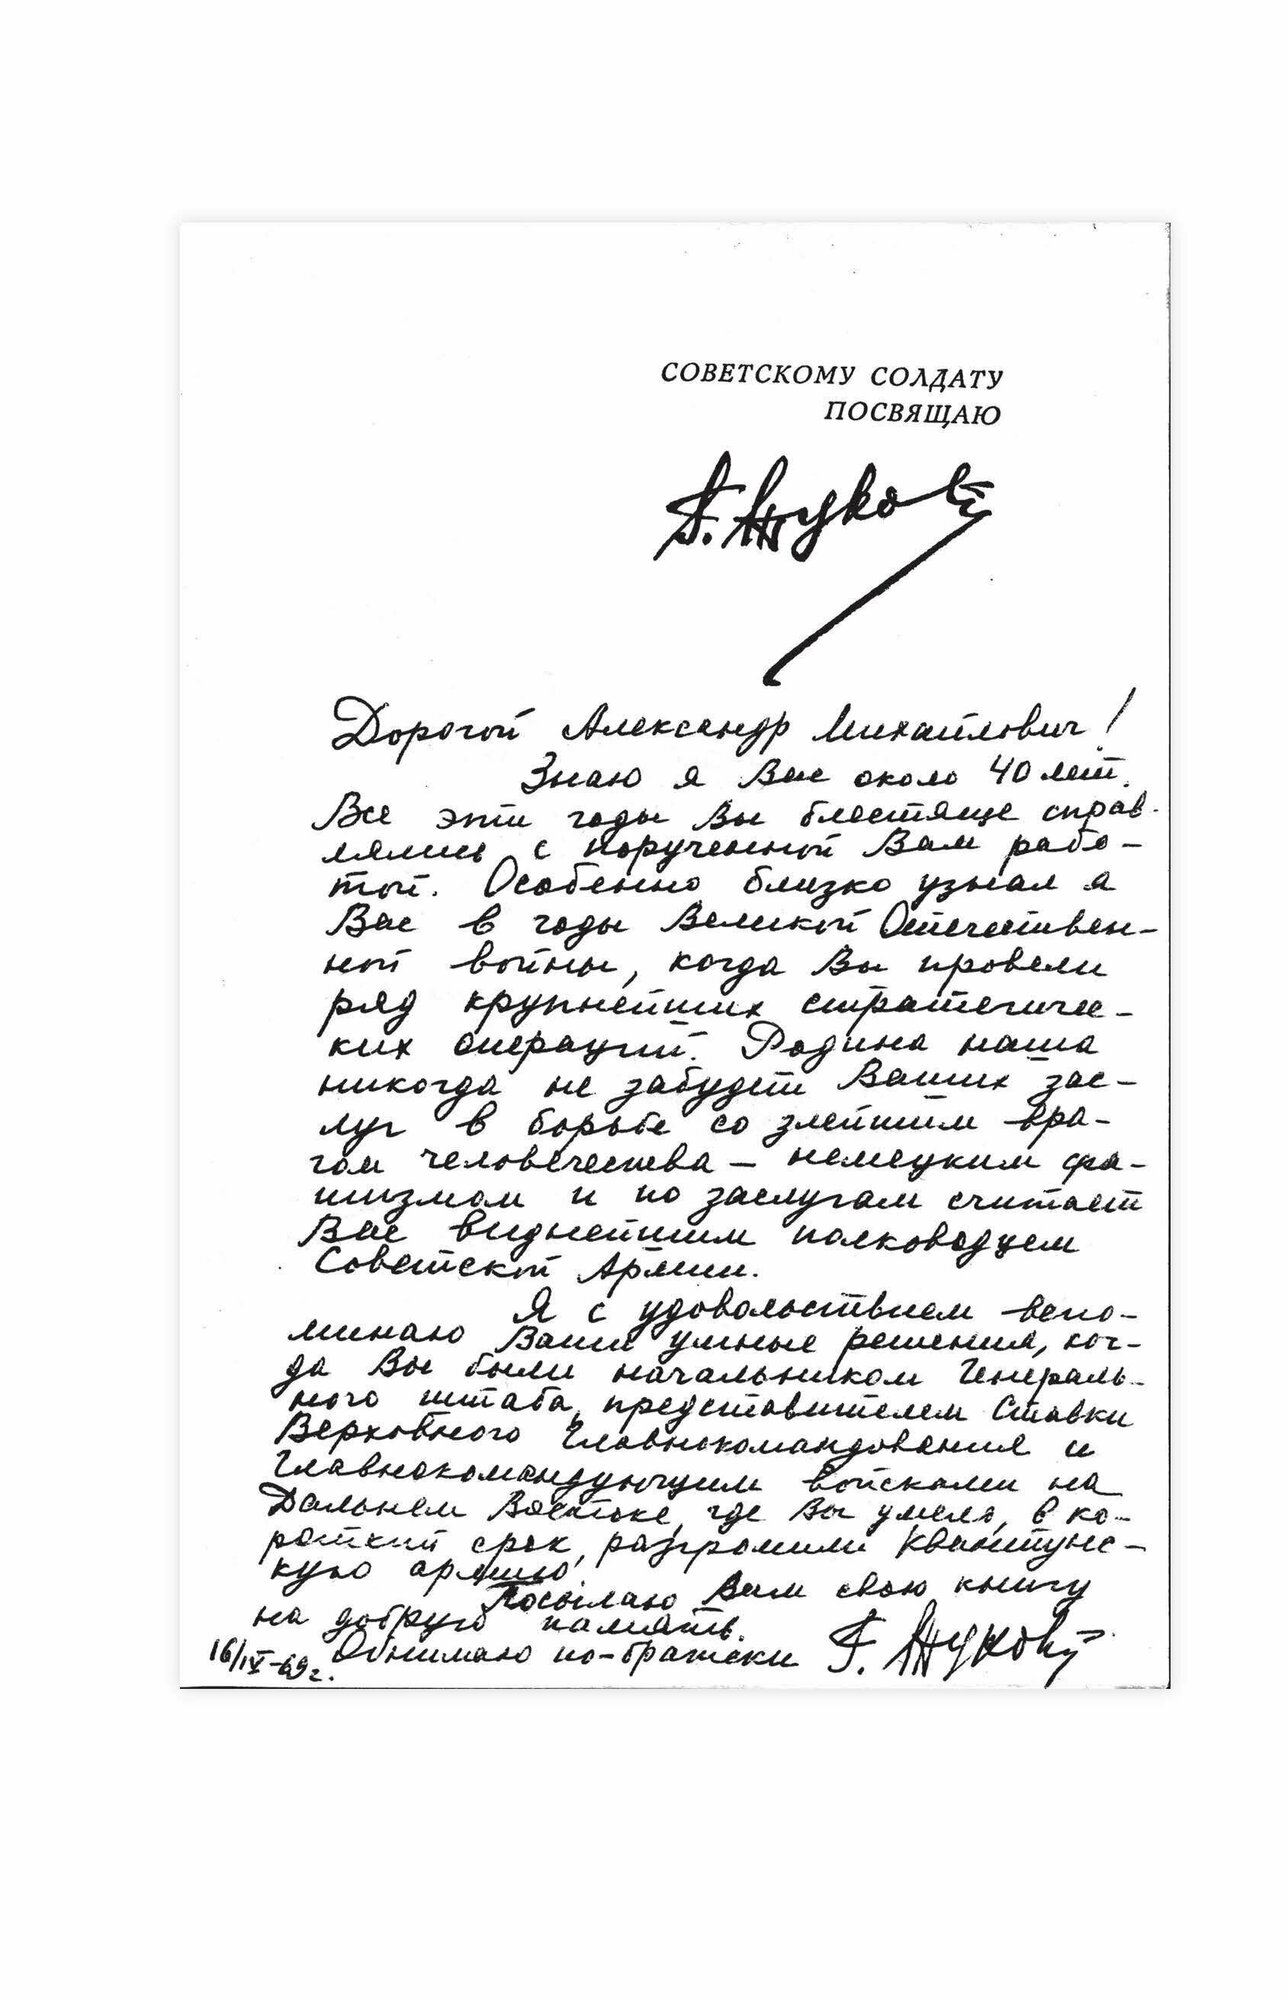 СОВЕТСКОМУ СОЛДАТУ
ПОСВЯЩАЮ
Г. Жуков
Дорогой Александр Михайлович!
Знаю я Вас около 40 лет.
Все эти годы Вы блестяще справ-
лялись с порученной Вам рабо-
той. Особенно близко узнал я
Вас в годы Великой Отечествен-
ной войны, когда Вы провели
ряд крупнейших стратегичес-
ких операций. Родина наша
никогда не забудет Ваших зас-
луг в борьбе со злейшим вра-
гом человечества – немецким фа-
шизмом и по заслугам считает
Вас виднейшим полководцем
Советской Армии.
Я с удовольствием вспо-
минаю Ваши умные решения, ког-
да Вы были начальником Генераль-
ного штаба, представителем Ставки
Верховного Главнокомандования и
Главнокомандующим войсками на
Дальнем Востоке, где Вы умело, в ко-
роткий срок, разгромили Квантунс-
кую армию.
Посылаю Вам свою книгу
на добрую память.
Обнимаю по-братски Г. Жуков
16/IV-69 г.